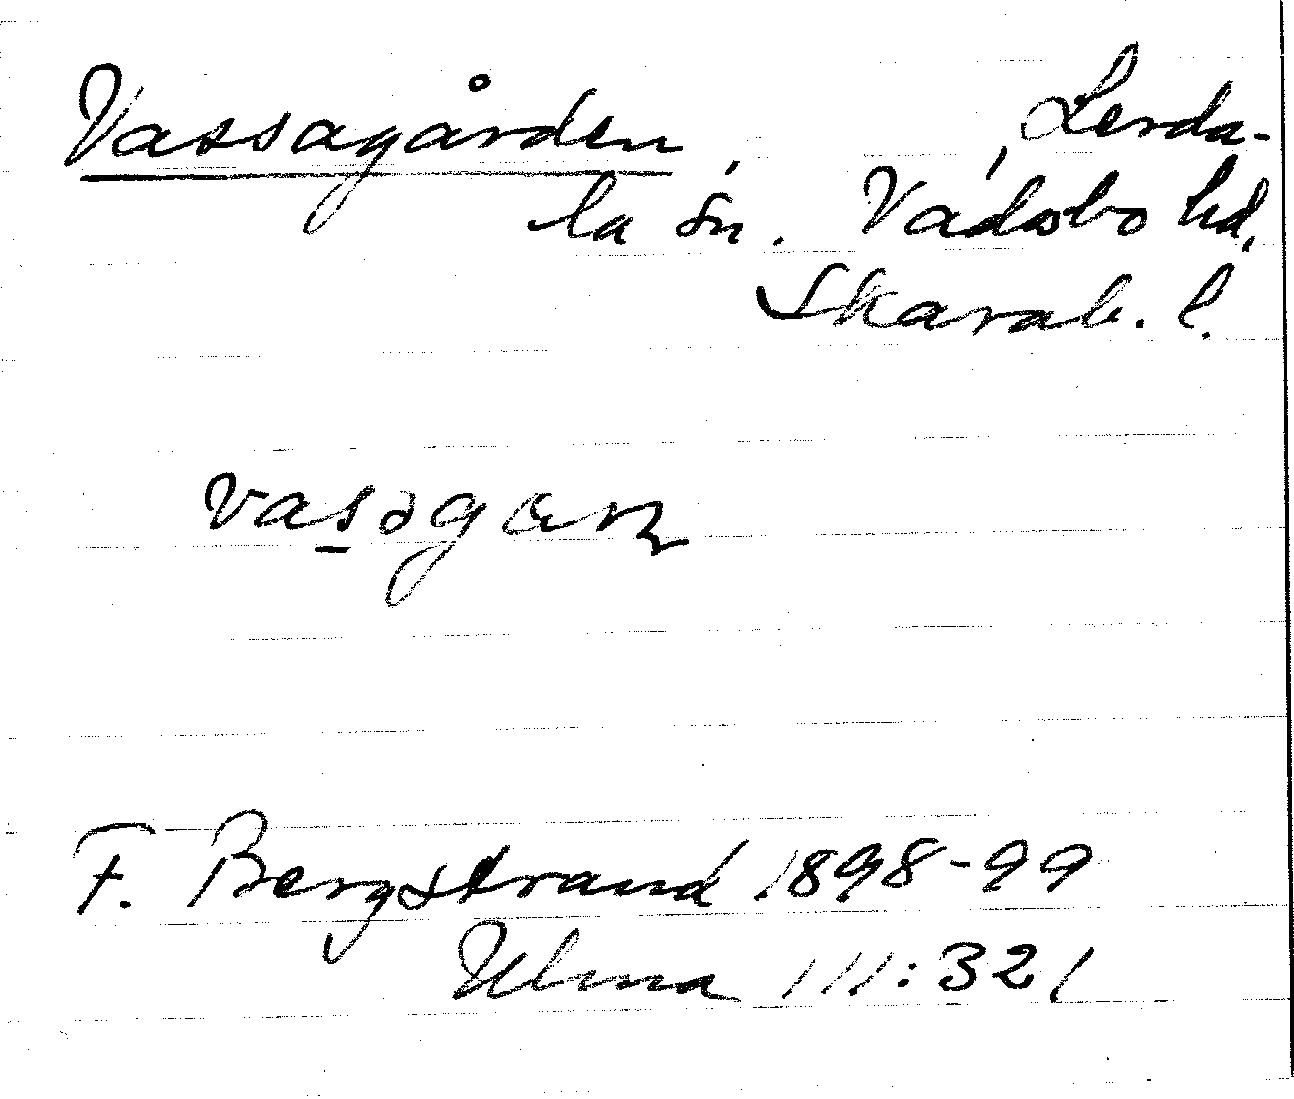 Vassagården, Lerda-
la sn. Vadsbo hd,
Skarab. l.
vasəgaɳ
F. Bergstrand 1898-99
Ulma 111:321